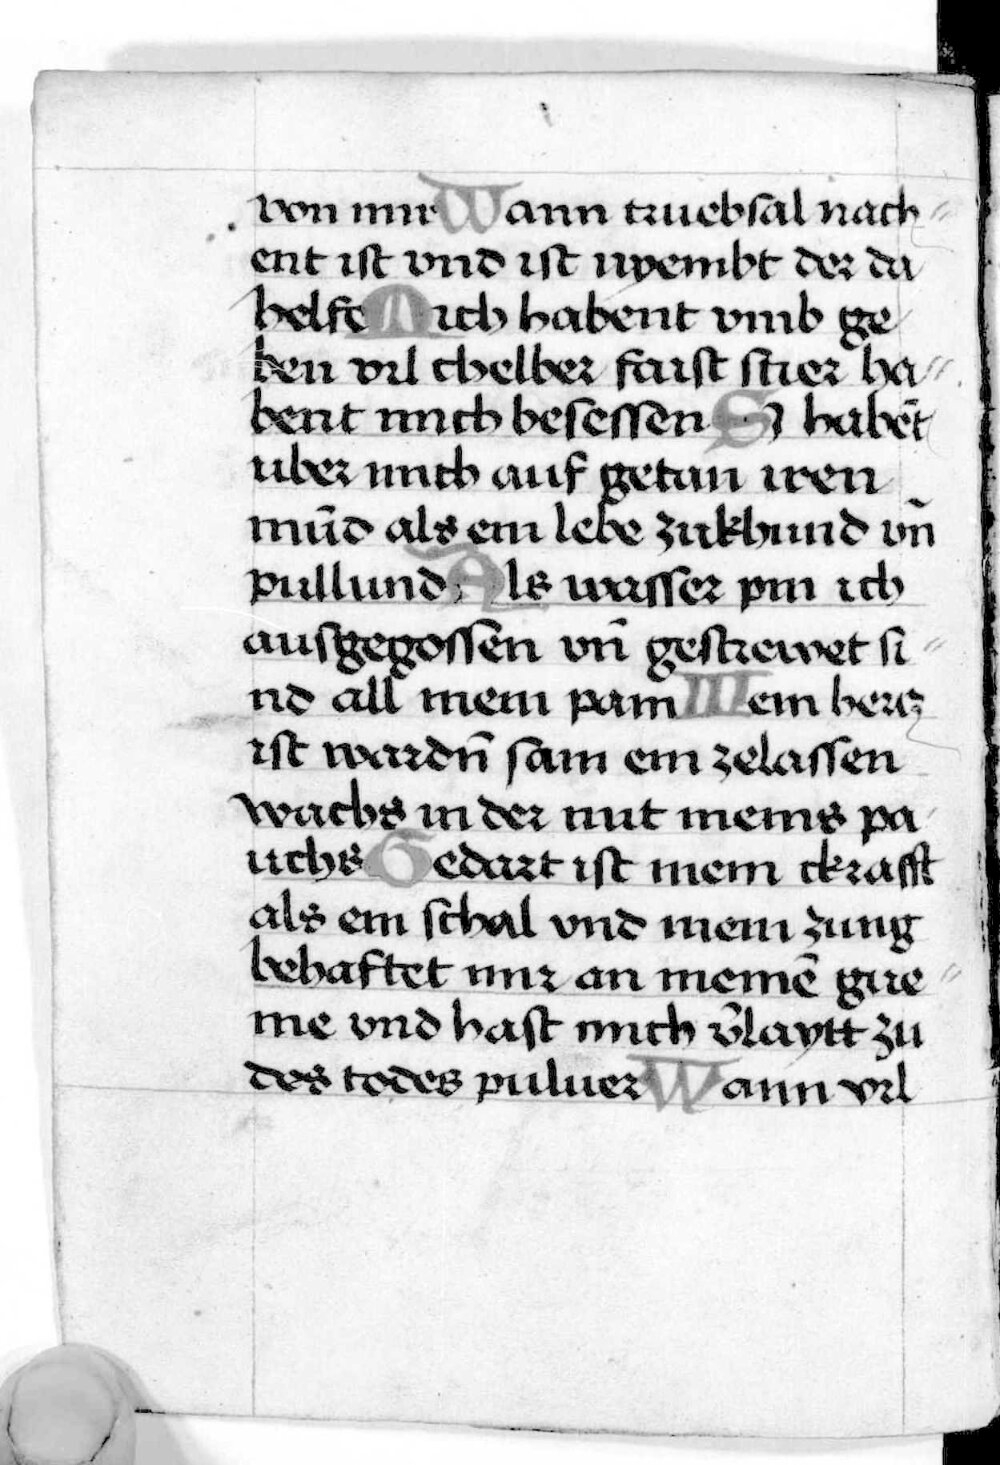 von mir Wann truebsal nach〃
ent ist vnd ist nyembt der da
helfe Mich habent vmb ge
ben vil chelber faist stier ha〃
bent mich besessen Si habēt
uber mich auf getan iren
mūd als ein lebe zukhund vn̄
pullund Als wasser pin ich
ausgegossen vn̄ gestrewet si〃
nd all mein pain Mein hercz
ist wardn̄ sam ein zelassen
wachs in der mit meins pa
uchs Gedart ist mein ckrafft
als ein schal vnd mein zung
behaftet mir an meinē gue〃
me vnd hast mich v̄laytt zu
des todes puluer Wann vil